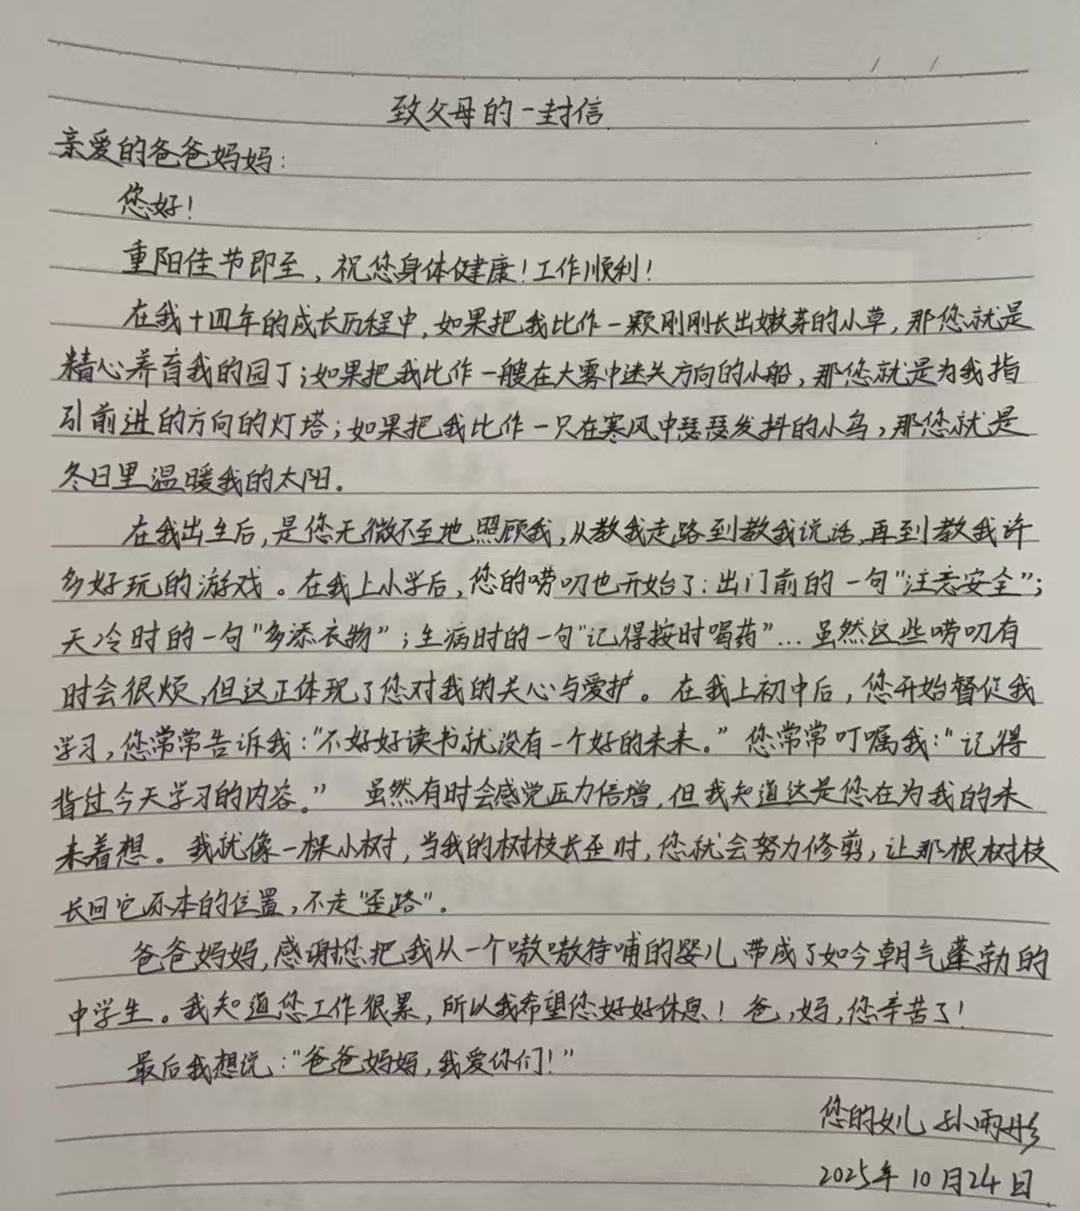 致父母的一封信
亲爱的爸爸妈妈：
您好！
重阳佳节即至，祝您身体健康！工作顺利！
在我十四年的成长历程中，如果把我比作一颗刚刚长出嫩芽的小草，那您就是
精心养育我的园丁；如果把我比作一艘在大雾中迷失方向的小船，那您就是为我指
引前进的方向的灯塔；如果把我比作一只在寒风中瑟瑟发抖的小鸟，那您就是
冬日里温暖我的太阳。
在我出生后，是您无微不至地照顾我，从教我走路到教我说话，再到教我许
多好玩的游戏。在我上小学后，您的唠叨也开始了：出门前的一句“注意安全”；
天冷时的一句“多添衣物”；生病时的一句“记得按时喝药”…虽然这些唠叨有
时会很烦，但这正体现了您对我的关心与爱护。在我上初中后，您开始督促我
学习，您常常告诉我：“不好好读书就没有一个好的未来。”您常常叮嘱我：“记得
背过今天学习的内容。”虽然有时会感觉压力倍增，但我知道这是您在为我的未
来着想。我就像一棵小树，当我的树枝长歪时，您就会努力修剪，让那根树枝
长回它原本的位置，不走“歪路”。
爸爸妈妈，感谢您把我从一个嗷嗷待哺的婴儿带成了如今朝气蓬勃的
中学生。我知道您工作很累，所以我希望您好好休息！爸，妈，您辛苦了！
最后我想说：“爸爸妈妈，我爱你们！”
您的女儿 孙雨彤
2025年10月24日